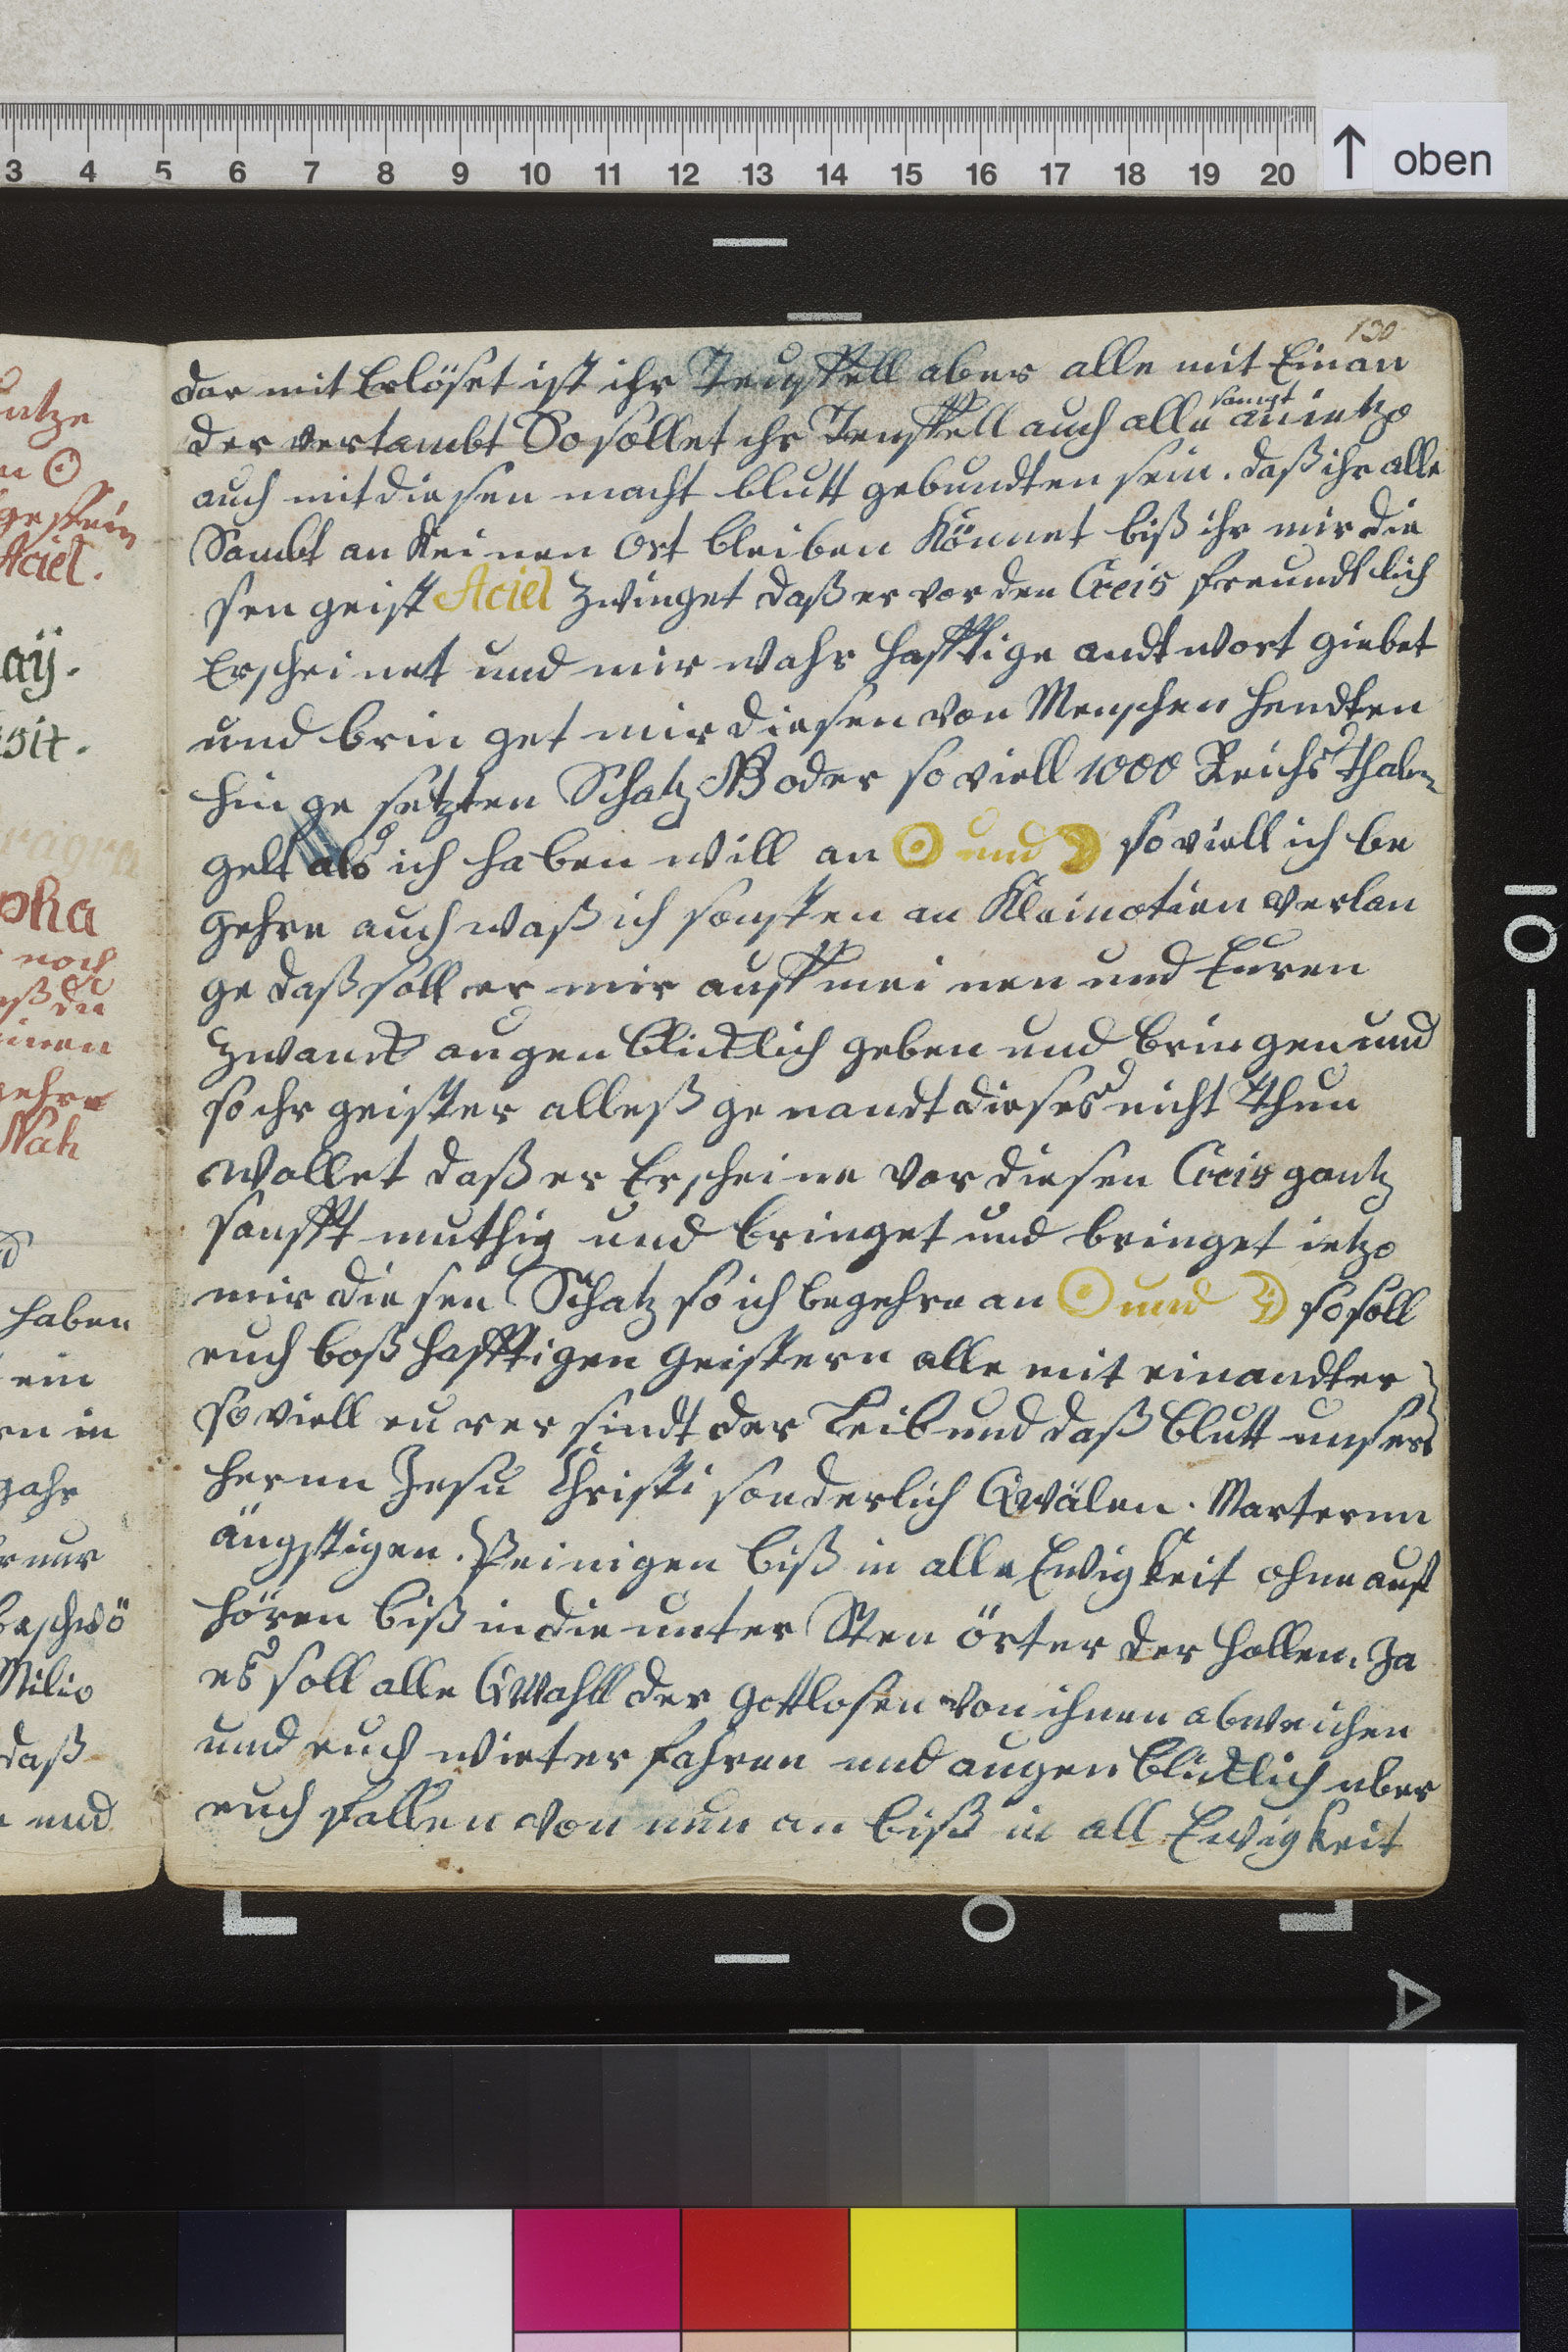 3 4 5 6 7 8 9 10 11 12 13 14 15 16 17 18 19 20
↑ oben
130
dar mit Erlöset ist ihr Teuffell aber alle mit Einan
der vertambt So sollet ihr Teuffell auch alle sampt an ietzo
auch mit diesen macht blutt gebundten sein. daß ihr alle
Sambt an Keinen Ort bleiben Könnet biß ihr mir die
sen geist Aciel Zwinget daß er vor den Creis freundtlich
Erscheinet und mir wahr hafftige andtwort giebet
und brin get mir diesen von Menschen hendten
hin ge setzten Schatz NB oder so viell 1000 Reichs Thaler
gelt als ich haben will an ☉ und ☽ so viell ich be
gehre auch waß ich sonsten an Kleinotien verlan
ge daß soll er mir auff mei nen und Euren
Zwanck augen blicklich geben und bringen und
so ihr geister alleß ge nandt dieses nicht Thun
wollet daß er Erscheine vor diesen Creis gantz
sanfft muthig und bringet und bringet ietzo
mir die sen Schatz so ich begehre an ☉ und ☽ so soll
euch boß hafftigen Geistern alle mit einandter
so viell eu rer sindt der Leib und daß blutt unsers
herrn Jesu Christi sonderlich Qwälen. Marternn
ängstigen. Peinigen biß in alle Ewigkeit ohne auf
hören biß in die unter Sten örter der hollen. Ja
es soll alle Qwahll der Gottlosen von ihnen abweichen
und euch wieter fahren und augen blicklich uber
euch fallen von nun an biß in all Ewigkeit
Aciel.
aÿ.
sit.
pha
noch
gehre
Nah
haben
ein
en in
beschwö
Milio
daß
und